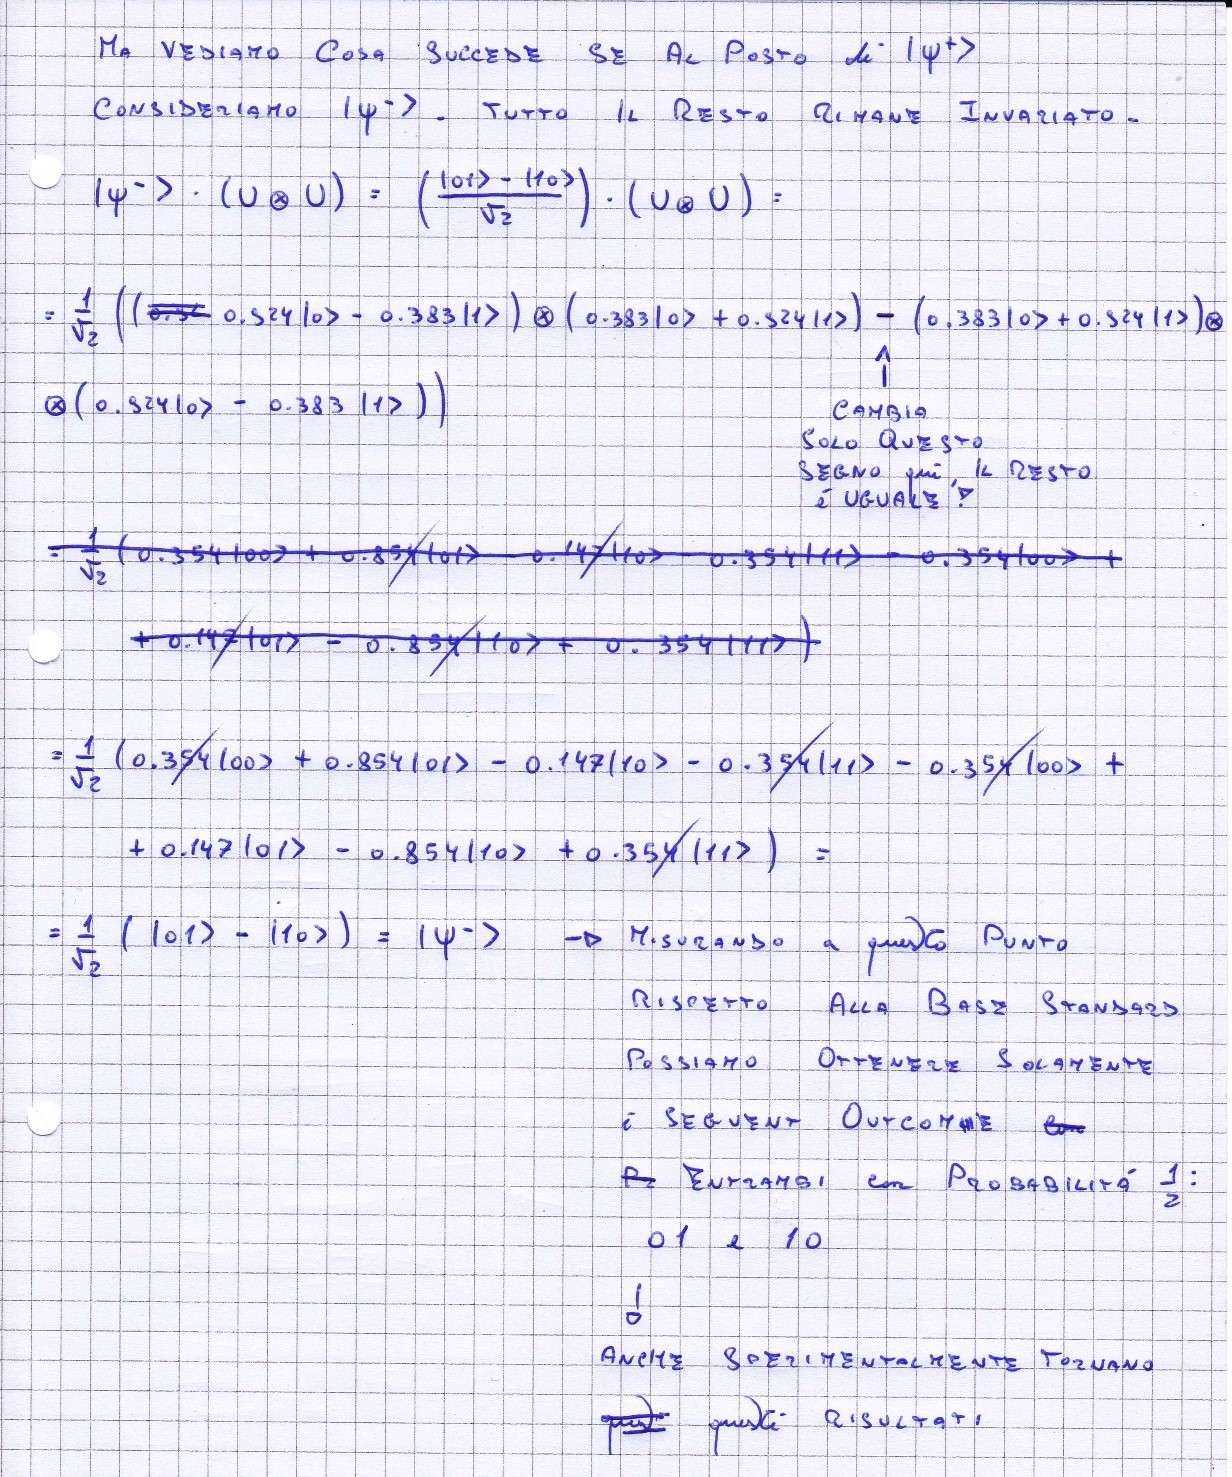 MA VEDIAMO COSA SUCCEDE SE AL POSTO di |ψ⁺>
CONSIDERIAMO |ψ⁻>. TUTTO IL RESTO RIMANE INVARIATO.
|ψ⁻> · (U ⊗ U) = ( (|01> - |10>) / √2 ) · (U ⊗ U) =
= 1/√2 (( 0.924|0> - 0.383|1>) ⊗ (0.383|0> + 0.924|1>) - (0.383|0> + 0.924|1>) ⊗
⊗ (0.924|0> - 0.383|1>))
CAMBIA
SOLO QUESTO
SEGNO qui, IL RESTO
è UGUALE!
= 1/√2 (0.354|00> + 0.854|01> - 0.147|10> - 0.354|11> - 0.354|00> +
+ 0.147|01> - 0.854|10> + 0.354|11>)
= 1/√2 (0.354|00> + 0.854|01> - 0.147|10> - 0.354|11> - 0.354|00> +
+ 0.147|01> - 0.854|10> + 0.354|11>) =
= 1/√2 (|01> - |10>) = |ψ⁻> → MISURANDO a questo PUNTO
RISPETTO ALLA BASE STANDARD
POSSIAMO OTTENERE SOLAMENTE
i SEGUENT OUTCOME
ENTRAMBI con PROBABILITÁ 1/2:
01 e 10
↓
ANCHE SPERIMENTALMENTE TORNANO
questi RISULTATI